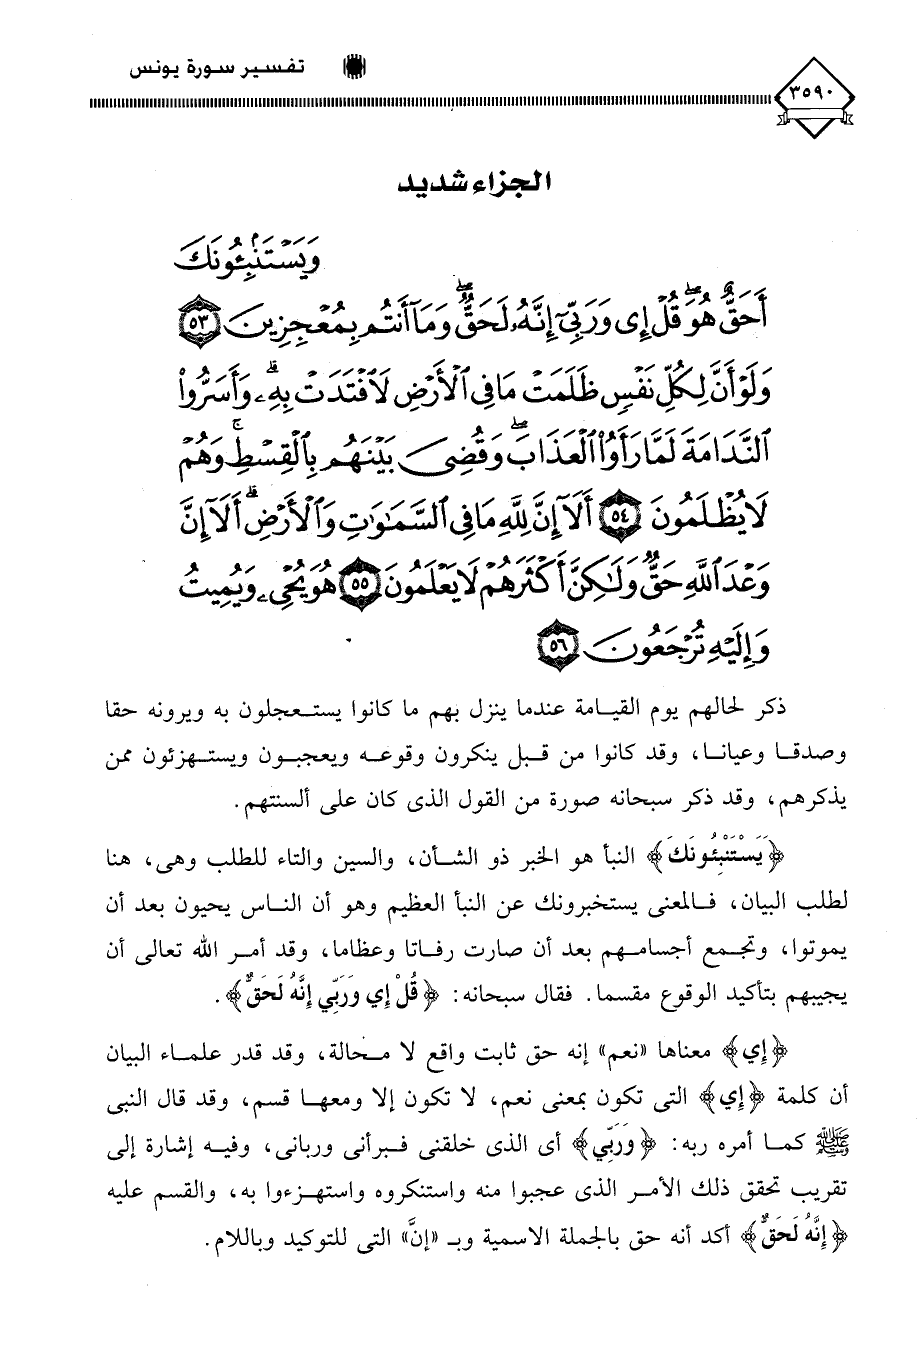 تفسير سورة يونس
٣٥٩٠
الجزاء شديد
وَيَسْتَنۢبِـُٔونَكَ
أَحَقٌّ هُوَ ۖ قُلْ إِى وَرَبِّىٓ إِنَّهُۥ لَحَقٌّ ۖ وَمَآ أَنتُم بِمُعْجِزِينَ ٥٣
وَلَوْ أَنَّ لِكُلِّ نَفْسٍ ظَلَمَتْ مَا فِى ٱلْأَرْضِ لَٱفْتَدَتْ بِهِۦ ۗ وَأَسَرُّوا۟
ٱلنَّدَامَةَ لَمَّا رَأَوُا۟ ٱلْعَذَابَ ۖ وَقُضِىَ بَيْنَهُم بِٱلْقِسْطِ ۚ وَهُمْ
لَا يُظْلَمُونَ ٥٤ أَلَآ إِنَّ لِلَّهِ مَا فِى ٱلسَّمَٰوَٰتِ وَٱلْأَرْضِ ۗ أَلَآ إِنَّ
وَعْدَ ٱللَّهِ حَقٌّ وَلَٰكِنَّ أَكْثَرَهُمْ لَا يَعْلَمُونَ ٥٥ هُوَ يُحْىِۦ وَيُمِيتُ
وَإِلَيْهِ تُرْجَعُونَ ٥٦
ذكر لحالهم يوم القيامة عندما ينزل بهم ما كانوا يستعجلون به ويرونه حقا
وصدقا وعيانا، وقد كانوا من قبل ينكرون وقوعه ويعجبون ويستهزئون ممن
يذكرهم، وقد ذكر سبحانه صورة من القول الذى كان على ألسنتهم.
﴿يَسْتَنْبِئُونَكَ﴾ النبأ هو الخبر ذو الشأن، والسين والتاء للطلب وهى، هنا
لطلب البيان، فالمعنى يستخبرونك عن النبأ العظيم وهو أن الناس يحيون بعد أن
يموتوا، وتجمع أجسامهم بعد أن صارت رفاتا وعظاما، وقد أمر الله تعالى أن
يجيبهم بتأكيد الوقوع مقسما. فقال سبحانه: ﴿قُلْ إِي وَرَبِّي إِنَّهُ لَحَقٌّ﴾.
﴿إِي﴾ معناها «نعم» إنه حق ثابت واقع لا محالة، وقد قدر علماء البيان
أن كلمة ﴿إِي﴾ التى تكون بمعنى نعم، لا تكون إلا ومعها قسم، وقد قال النبى
ﷺ كما أمره ربه: ﴿وَرَبِّي﴾ أى الذى خلقنى فبرأنى وربانى، وفيه إشارة إلى
تقريب تحقق ذلك الأمر الذى عجبوا منه واستنكروه واستهزءوا به، والقسم عليه
﴿إِنَّهُ لَحَقٌّ﴾ أكد أنه حق بالجملة الاسمية وبـ «إنَّ» التى للتوكيد وباللام.